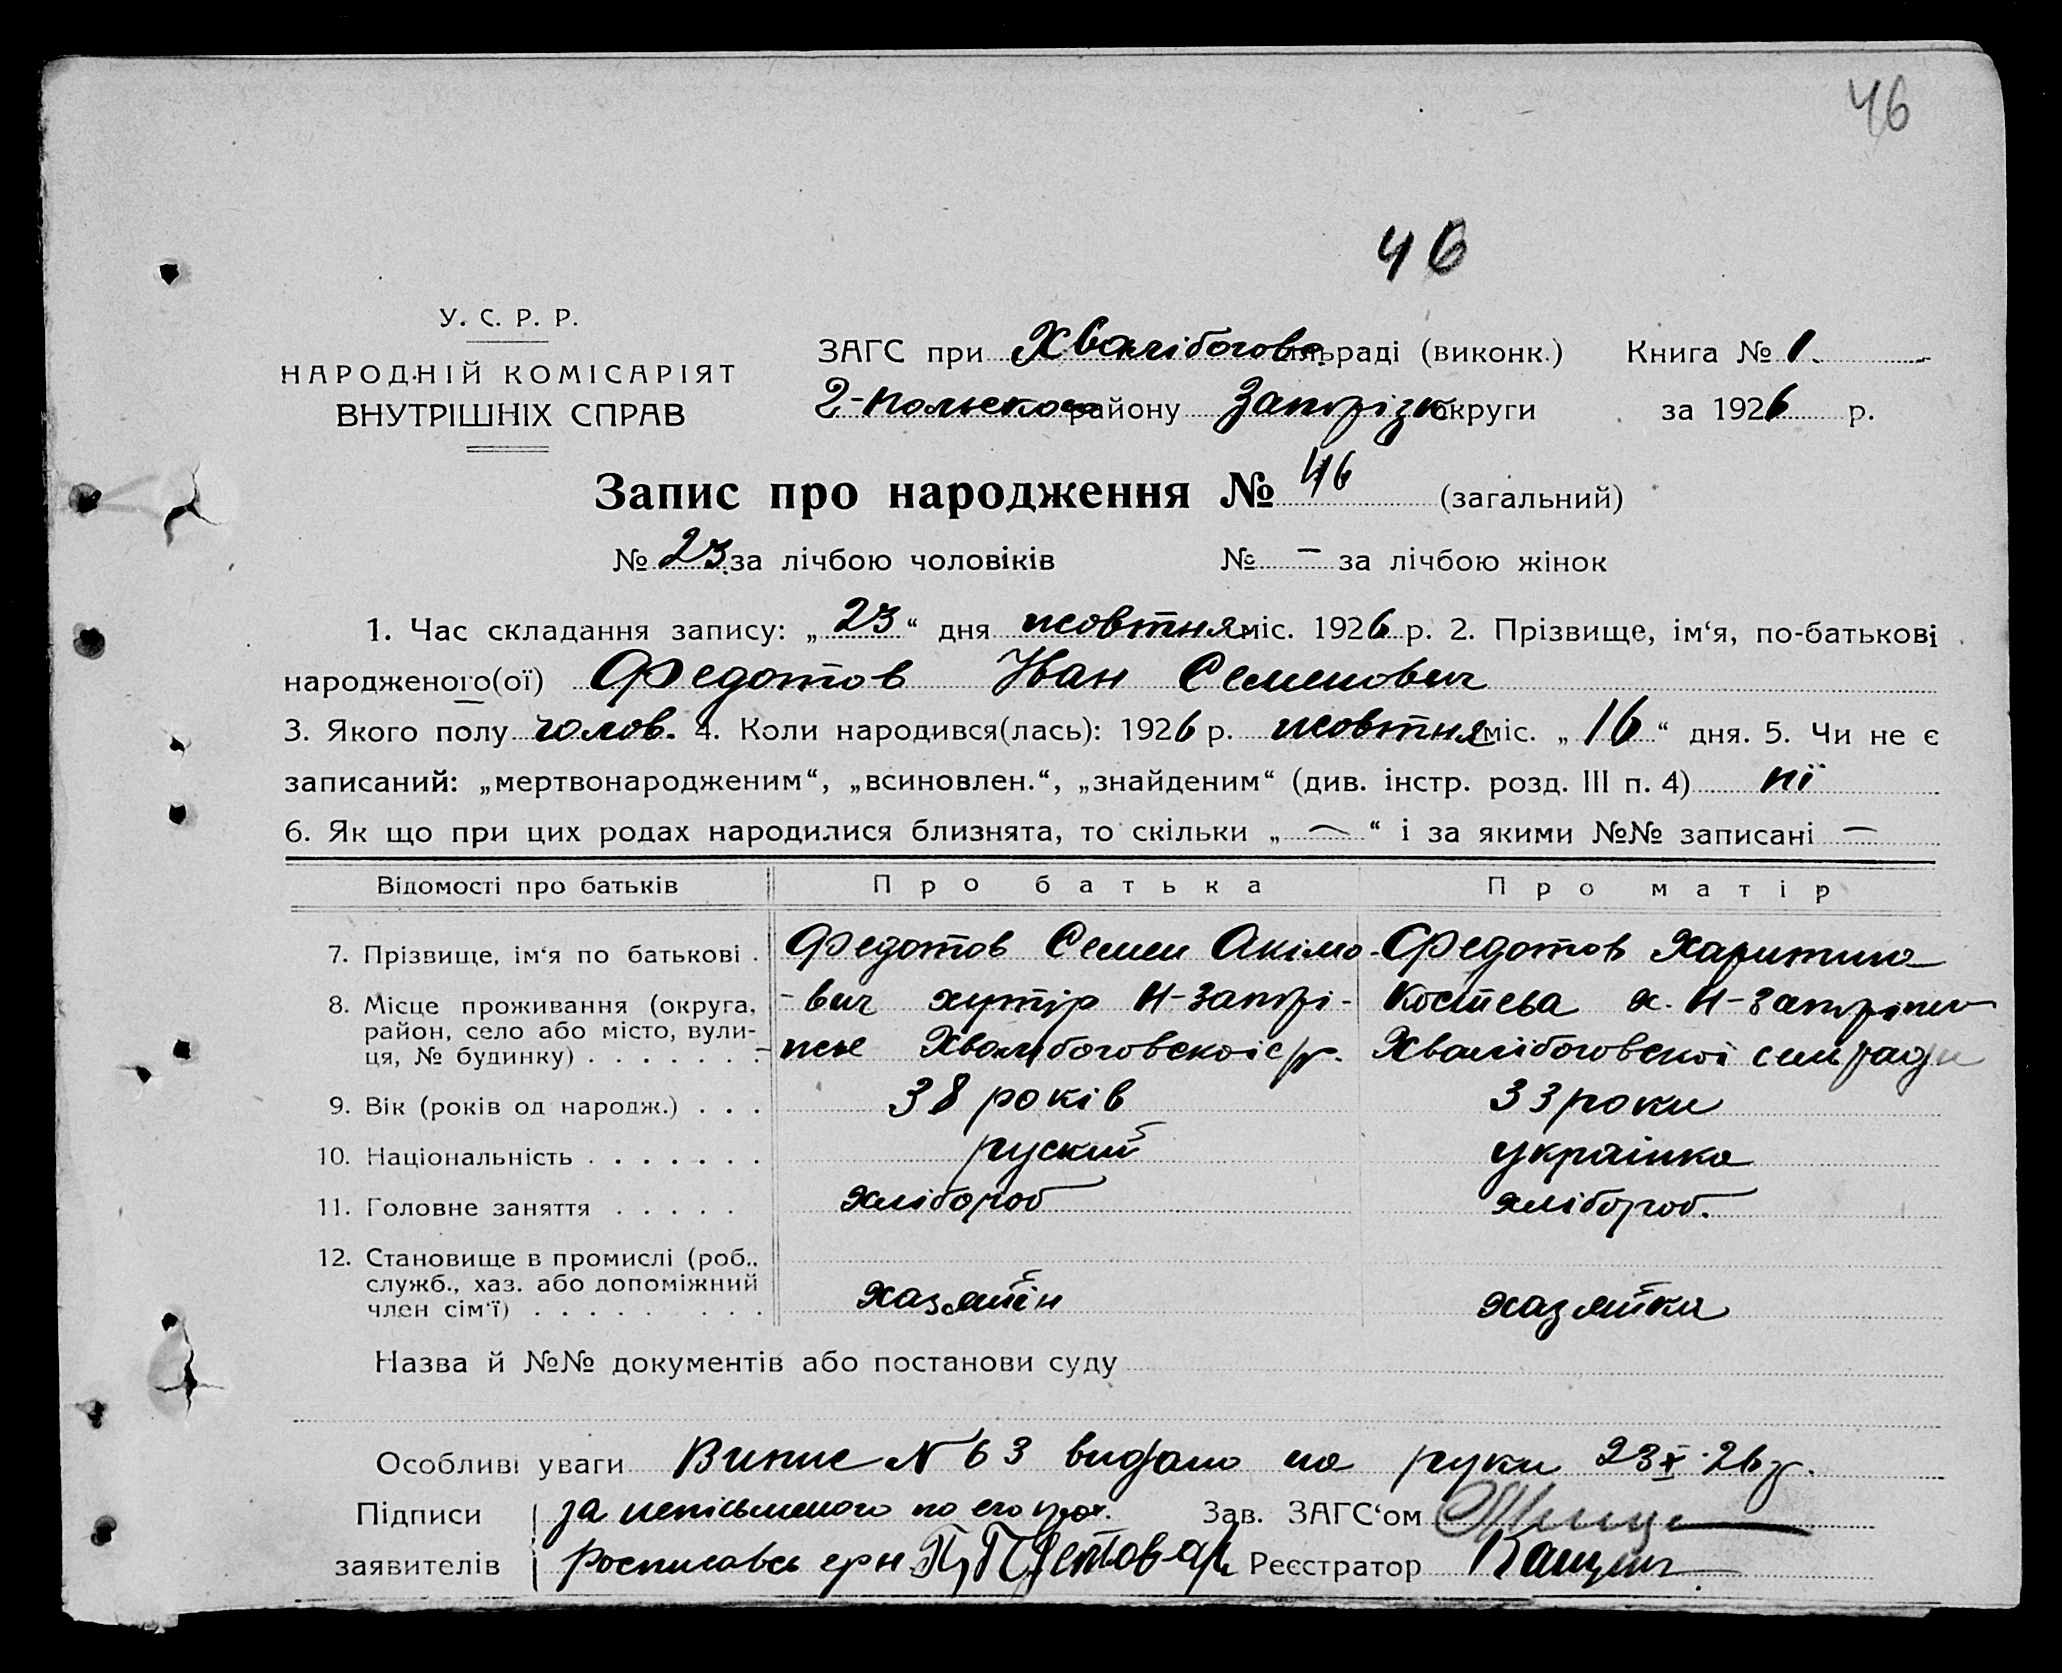 46
46
У. С. Р. Р.
НАРОДНІЙ КОМІСАРІЯТ
ВНУТРІШНІХ СПРАВ
ЗАГС при Хвалібогов. сільраді (виконк.) Книга № 1.
2-польсько району Запоріз. округи за 1926 р.
Запис про народження № 46 (загальний)
№ 23 за лічбою чоловіків № – за лічбою жінок
1. Час складання запису: „23“ дня жовтня міс. 1926 р. 2. Прізвище, ім‘я, по-батькові
народженого(ої) Федотов Іван Семенович
3. Якого полу чолов. 4. Коли народився(лась): 1926 р. жовтня міс. „16“ дня. 5. Чи не є
записаний: „мертвонародженим“, „всиновлен.“, „знайденим“ (див. інстр. розд. III п. 4) ні
6. Як що при цих родах народилися близнята, то скільки „—“ і за якими №№ записані —
Відомості про батьків Про батька Про матір
7. Прізвище, ім‘я по батькові . Федотов Семен Акімо- Федотов Харитина
8. Місце проживання (округа, -вич хутір Н-Запорі- Костева х. Н-Запоріжж
район, село або місто, вули-
ця, № будинку) . . . . . . . -жжє Хвалібоговскоі с/р. Хвалібоговскоі сельради
9. Вік (років од народж.) . . . 38 років 33 роки
10. Національність . . . . . . . руский украінка
11. Головне заняття . . . . . хлібороб хлібороб.
12. Становище в промислі (роб.,
служб., хаз. або допоміжний
член сім‘ї) . . . . . . . . хазяйін хазяйка
Назва й №№ документів або постанови суду
Особливі уваги Випис N 63 видано на руки 23 X 26 р.
Підписи за непісьменого по его прох. Зав. ЗАГС‘ом
заявителів росписавсь Реєстратор